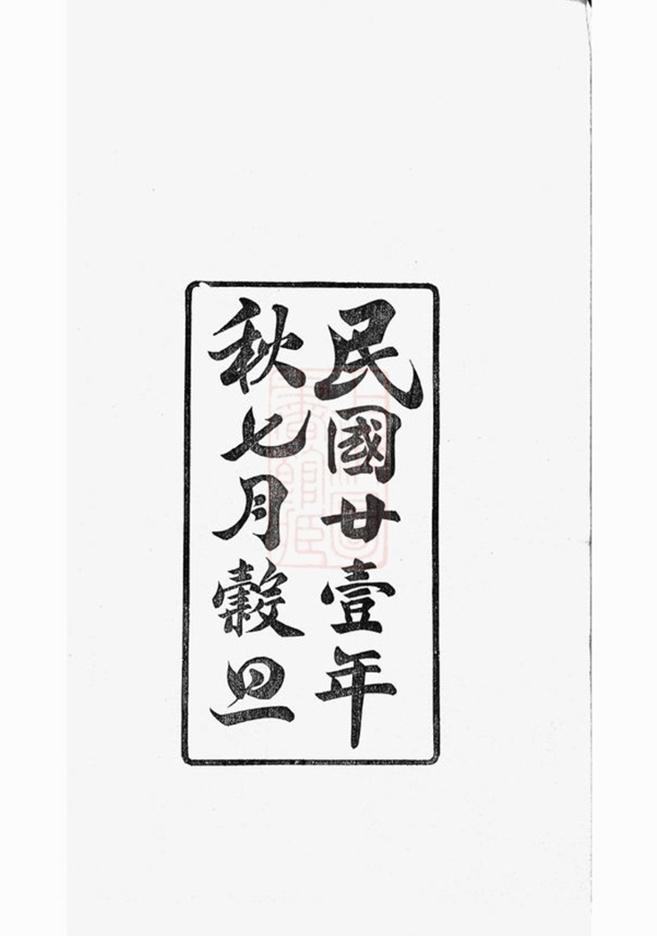 民國廿壹年
秋七月榖旦